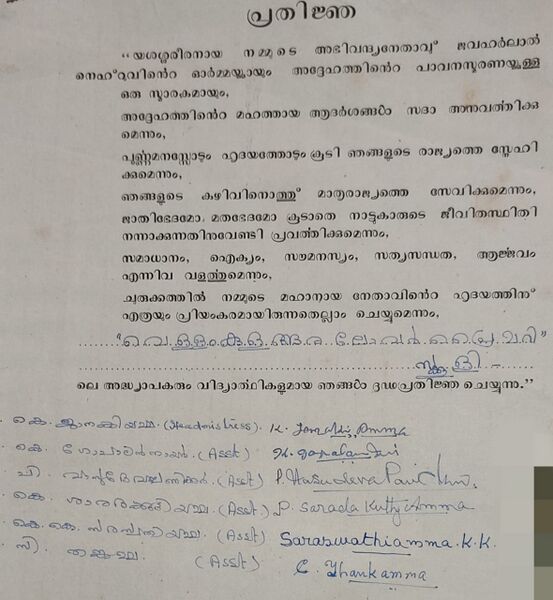 പ്രതിജ്ഞ
“യശശ്ശരീരനായ നമ്മുടെ അഭിവന്ദ്യനേതാവ് ജവഹർലാൽ
നെഹ്റുവിൻെറ ഓർമ്മയ്ക്കായും അദ്ദേഹത്തിൻെറ പാവനസ്മരണയ്ക്കുള്ള
ഒരു സ്മാരകമായും,
അദ്ദേഹത്തിൻെറ മഹത്തായ ആദർശങ്ങൾ സദാ അനുവർത്തിക്കു
മെന്നും,
പൂർണ്ണമനസ്സോടും ഹൃദയത്തോടും കൂടി ഞങ്ങളുടെ രാജ്യത്തെ സ്നേഹി
ക്കുമെന്നും,
ഞങ്ങളുടെ കഴിവിനൊത്തു് മാതൃരാജ്യത്തെ സേവിക്കുമെന്നും,
ജാതിഭേദമോ മതഭേദമോ കൂടാതെ നാട്ടുകാരുടെ ജീവിതസ്ഥിതി
നന്നാക്കുന്നതിനുവേണ്ടി പ്രവർത്തിക്കുമെന്നും,
സമാധാനം, ഐക്യം, സൗമനസ്യം, സത്യസന്ധത, ആർജ്ജവം
എന്നിവ വളർത്തുമെന്നും,
ചുരുക്കത്തിൽ നമ്മുടെ മഹാനായ നേതാവിൻെറ ഹൃദയത്തിനു്
എത്രയും പ്രിയംകരമായിരുന്നതെല്ലാം ചെയ്യുമെന്നും,
ലോവർ പ്രൈമറി
സ്കൂളി
ലെ അദ്ധ്യാപകരും വിദ്യാർത്ഥികളുമായ ഞങ്ങൾ ദൃഢപ്രതിജ്ഞ ചെയ്യുന്നു.”
കെ. ജാനകിയമ്മ (Headmistress). K. Janaki Amma
കെ. ഗോപാലൻനായർ (Asst) K. Gopalan Nair
പി. വാസുദേവപ്പണിക്കർ (Asst) P. Vasudeva Panicker
ശാരദക്കുട്ടിയമ്മ. (Asst) P. Sarada Kutty Amma
കെ. കെ. സരസ്വതിയമ്മ. (Asst) Saraswathiamma. K. K.
സി. തങ്കമ്മ. (Asst) C. Thankamma